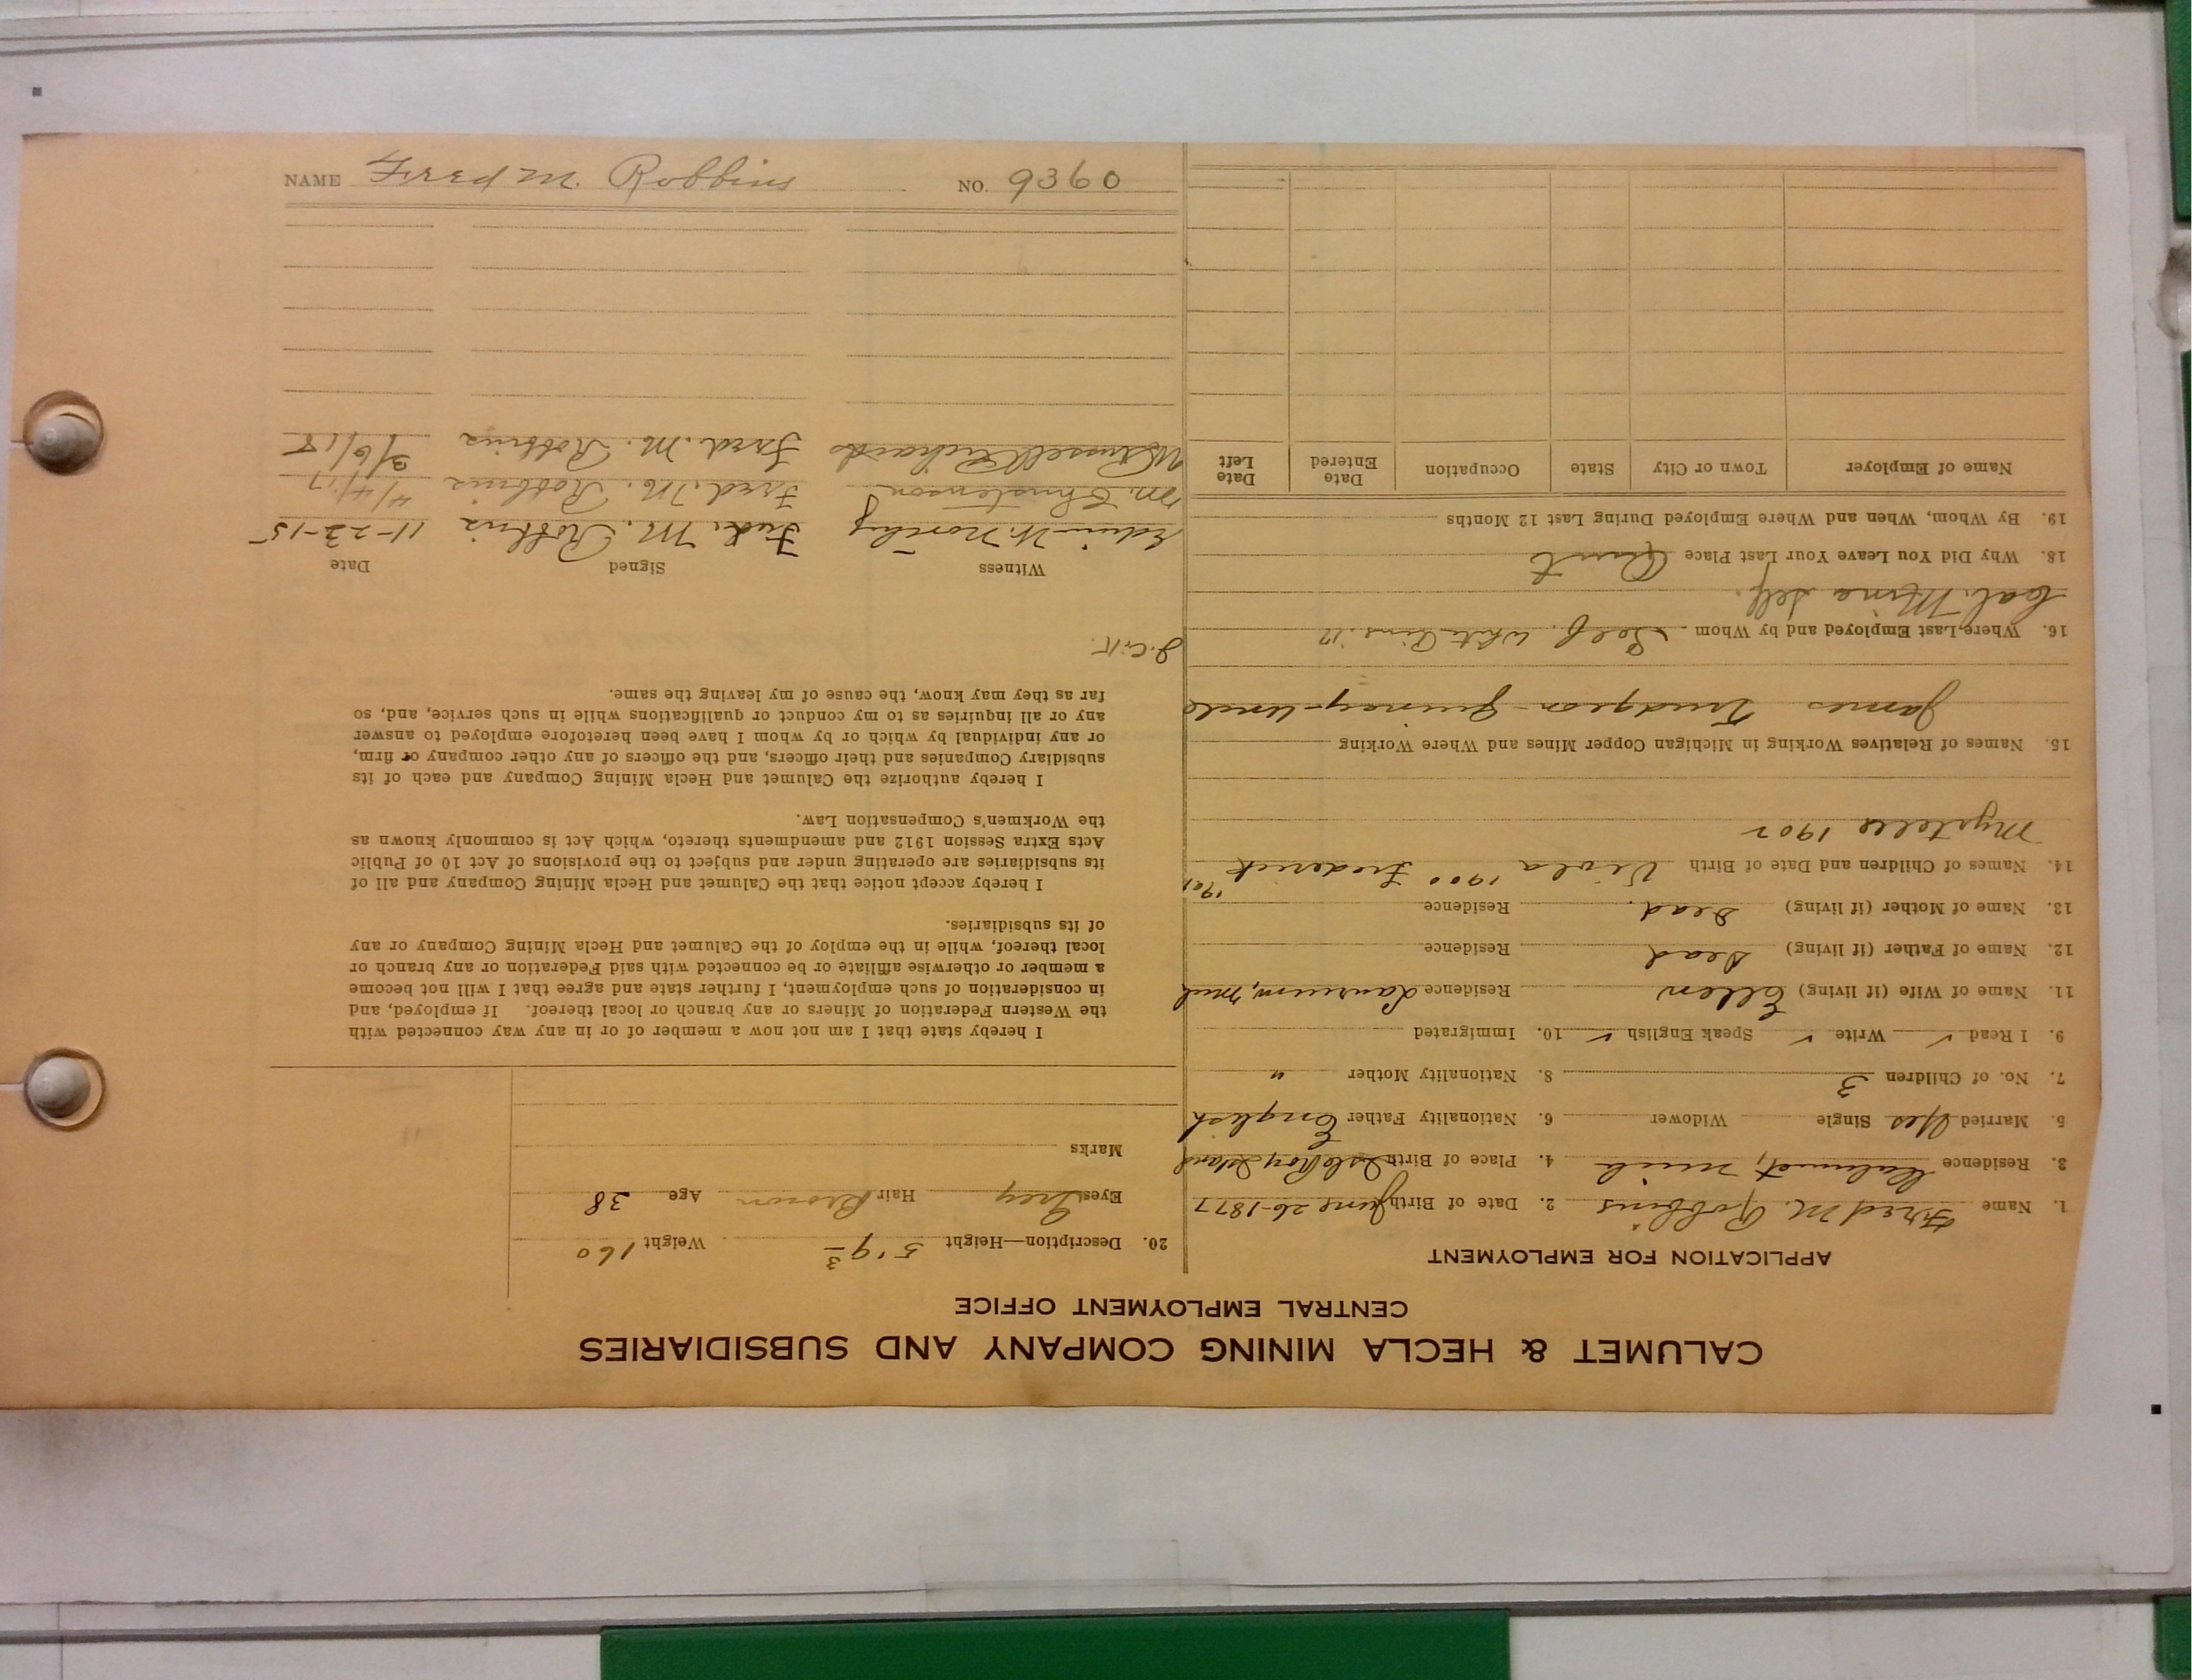 CALUMET & HECLA MINING COMPANY AND SUBSIDIARIES
CENTRAL EMPLOYMENT OFFICE
APPLICATION FOR EMPLOYMENT
1. Name Fred M. Robbins 2. Date of Birth June 26-1877
3. Residence Calumet, Mich 4. Place of Birth Isle Roy Island
5. Married Yes Single Widower 6. Nationality Father English
7. No. of Children 3 8. Nationality Mother "
9. I Read ✓ Write ✓ Speak English ✓ 10. Immigrated
11. Name of Wife (if living) Ellen Residence Laurium, Mich
12. Name of Father (if living) Dead Residence
13. Name of Mother (if living) Dead. Residence
14. Names of Children and Date of Birth Viola 1900 Frederick 1901
1902
15. Names of Relatives Working in Michigan Copper Mines and Where Working
James Trudgeon - Quincy - Uncle
16. Where Last Employed and by Whom. Self.
Cal. Mine self.
18. Why Did You Leave Your Last Place Quit
19. By Whom, When and Where Employed During Last 12 Months
Name of Employer Town or City State Occupation Date Entered Date Left
20. Description—Height 5'9 3/ Weight 160
Eyes Grey Hair Brown Age 38
Marks
I hereby state that I am not now a member of or in any way connected with
the Western Federation of Miners or any branch or local thereof. If employed, and
in consideration of such employment, I further state and agree that I will not become
a member or otherwise affiliate or be connected with said Federation or any branch or
local thereof, while in the employ of the Calumet and Hecla Mining Company or any
of its subsidiaries.
I hereby accept notice that the Calumet and Hecla Mining Company and all of
its subsidiaries are operating under and subject to the provisions of Act 10 of Public
Acts Extra Session 1912 and amendments thereto, which Act is commonly known as
the Workmen's Compensation Law.
I hereby authorize the Calumet and Hecla Mining Company and each of its
subsidiary Companies and their officers, and the officers of any other company or firm,
or any individual by which or by whom I have been heretofore employed to answer
any or all inquiries as to my conduct or qualifications while in such service, and, so
far as they may know, the cause of my leaving the same.
Witness Signed Date
Edwin W. Northey Fred. M. Robbins 11-23-15
M. Christenson Fred. M. Robbins 4/4/17
Russell Richards Fred. M. Robbins 3/6/18
NAME Fred M. Robbins NO. 9360